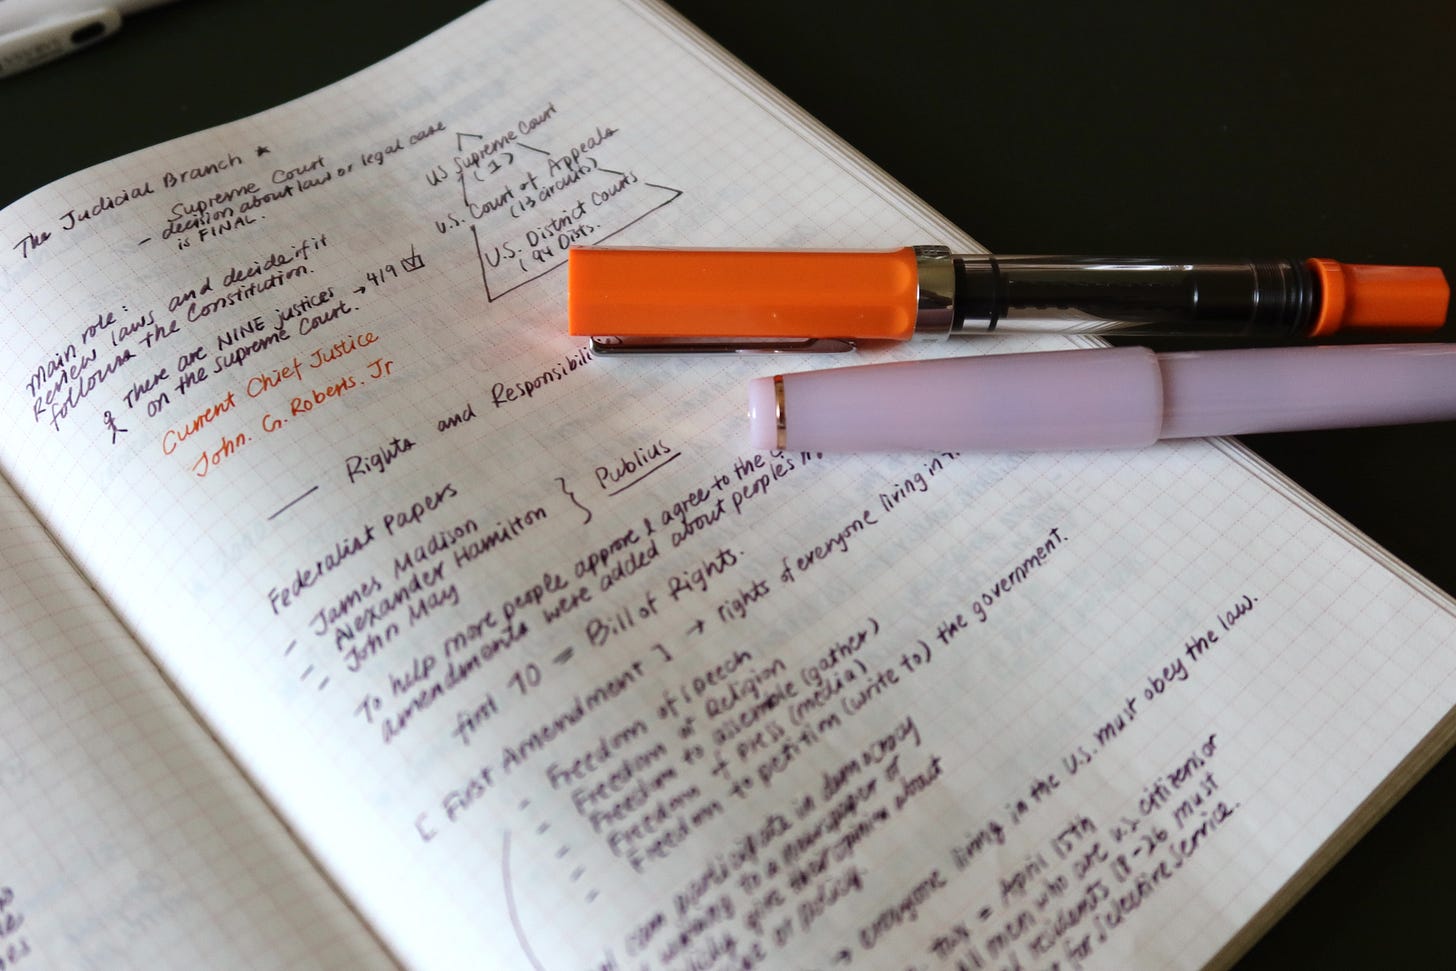 The Judicial Branch ★
Supreme Court
- decision about law or legal case
is FINAL.
US Supreme Court
(1)
U.S. Court of Appeals
(13 circuits)
U.S. District Courts
(94 Dists.
main role:
Review laws and decide if it
follows the Constitution.
There are NINE justices → 4/9
on the supreme Court.
Current Chief Justice
John. G. Roberts. Jr
Rights and Responsibili
Federalist Papers
- James Madison
- Alexander Hamilton } Publius
- John May
To help more people approve & agree to the
amendments were added about peoples
first 10 = Bill of Rights.
[ First Amendment ] → rights of everyone living in
- Freedom of speech
- Freedom of Religion
- Freedom to assemble (gather)
- Freedom of press (media)
- Freedom to petition (write to) the government.
can participate in democracy
to a newspaper or
give their opinion about
or policy.
→ everyone living in the U.S. must obey the law.
tax = April 15th
All men who are U.S. citizens or
residents 18-26 must
for selective service.